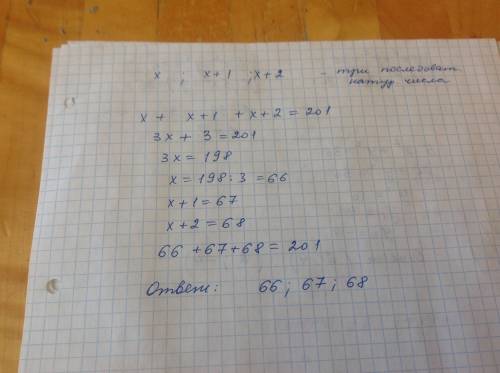 x ; x+1 ; x+2 - три последоват.
натур числа
x + x+1 + x+2 = 201
3x + 3 = 201
3x = 198
x = 198 : 3 = 66
x+1 = 67
x+2 = 68
66 + 67 + 68 = 201
Ответ: 66 ; 67 ; 68